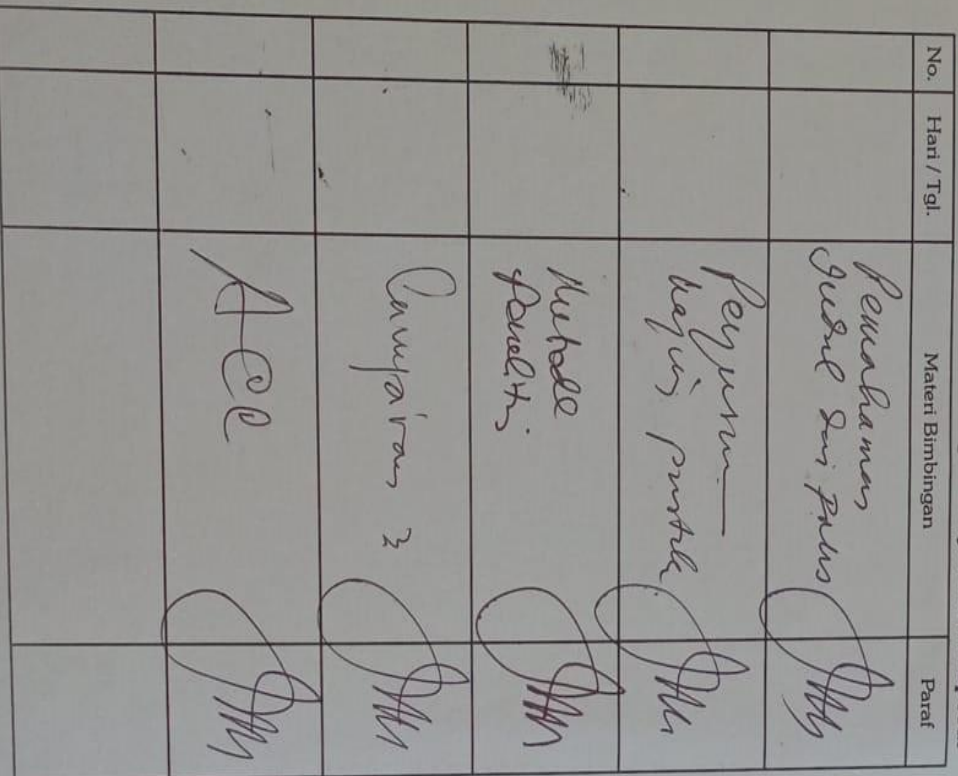 No. Hari / Tgl. Materi Bimbingan Paraf
Pemahaman
Judul dan
Penyusun
kajian pustaka
Metode
Penelitian
Lampiran
ACC